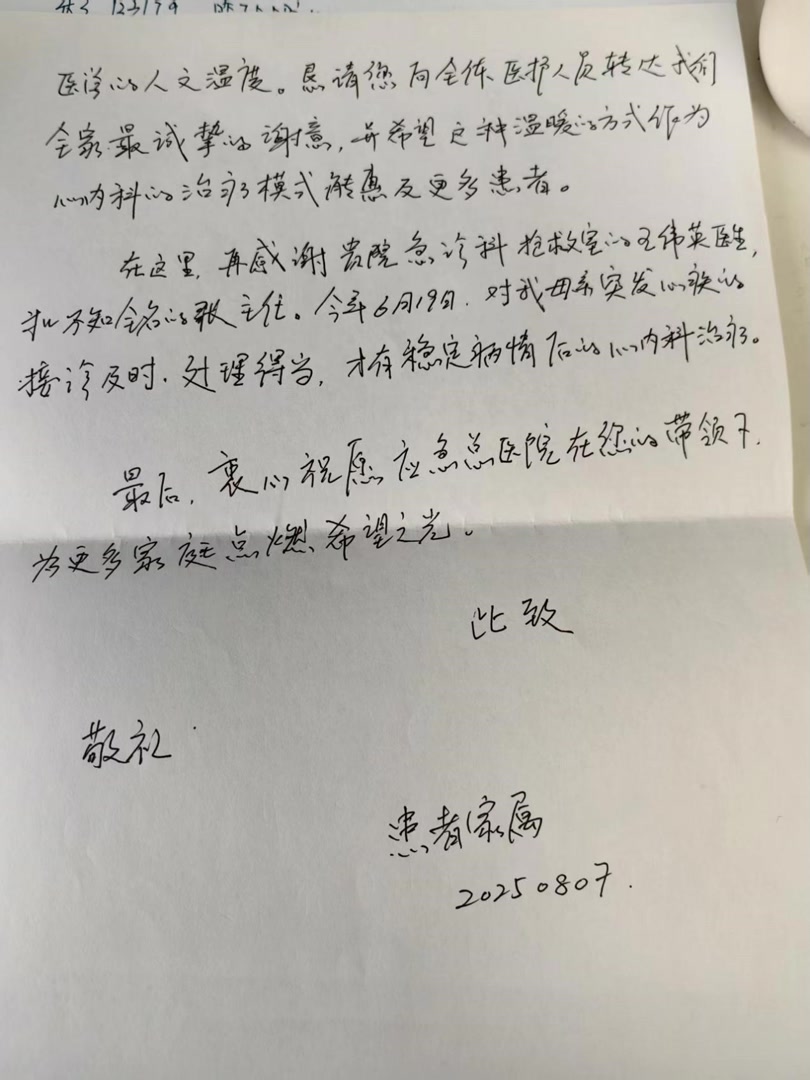 医学的人文温度。恳请您向全体医护人员转达我们
全家最诚挚的谢意，并希望这种温暖的方式作为
心内科的治疗模式能惠及更多患者。
在这里，再感谢贵院急诊科抢救室的王伟英医生，
和不知全名的张主任。今年6月19日，对我母亲突发心衰的
接诊及时、处理得当，才有稳定病情后的心内科治疗。
最后，衷心祝愿应急总医院在您的带领下，
为更多家庭点燃希望之光。
此致
敬礼
患者家属
20250807.